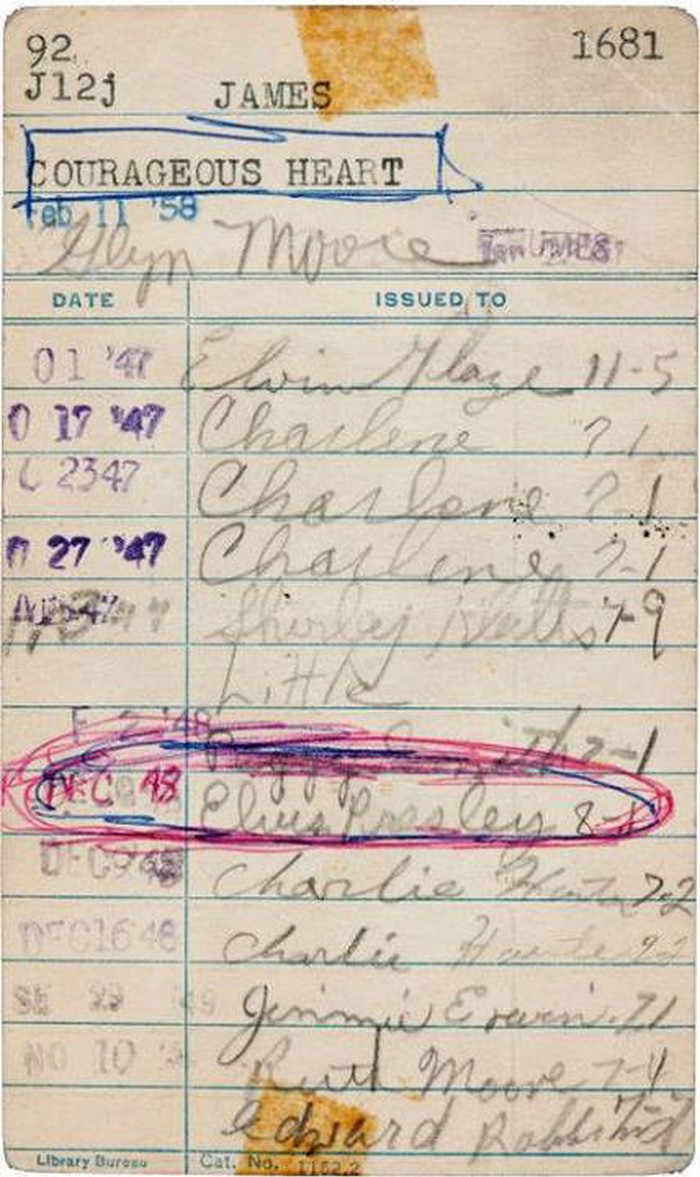 92 1681
J12j JAMES
COURAGEOUS HEART
Feb 11 '58
Glyn Moore
DATE ISSUED TO
01 '47 Elvin Glaze 11-5
0 17 '47 Charlene 7-1
2347 Charlene 7-1
27 '47 Charlene 7-1
Shirley 7-9
Little
F 2 '48 Peggy 7-1
DEC 48 Elvis Presley 8-1
DEC 9 48 Charlie 7-2
DEC 16 48 Charlie
SE 29 '49 Jimmie Erwin 71
NO 10 Ruth Moore 7-4
Edward
Library Bureau Cat. No. 1162.2